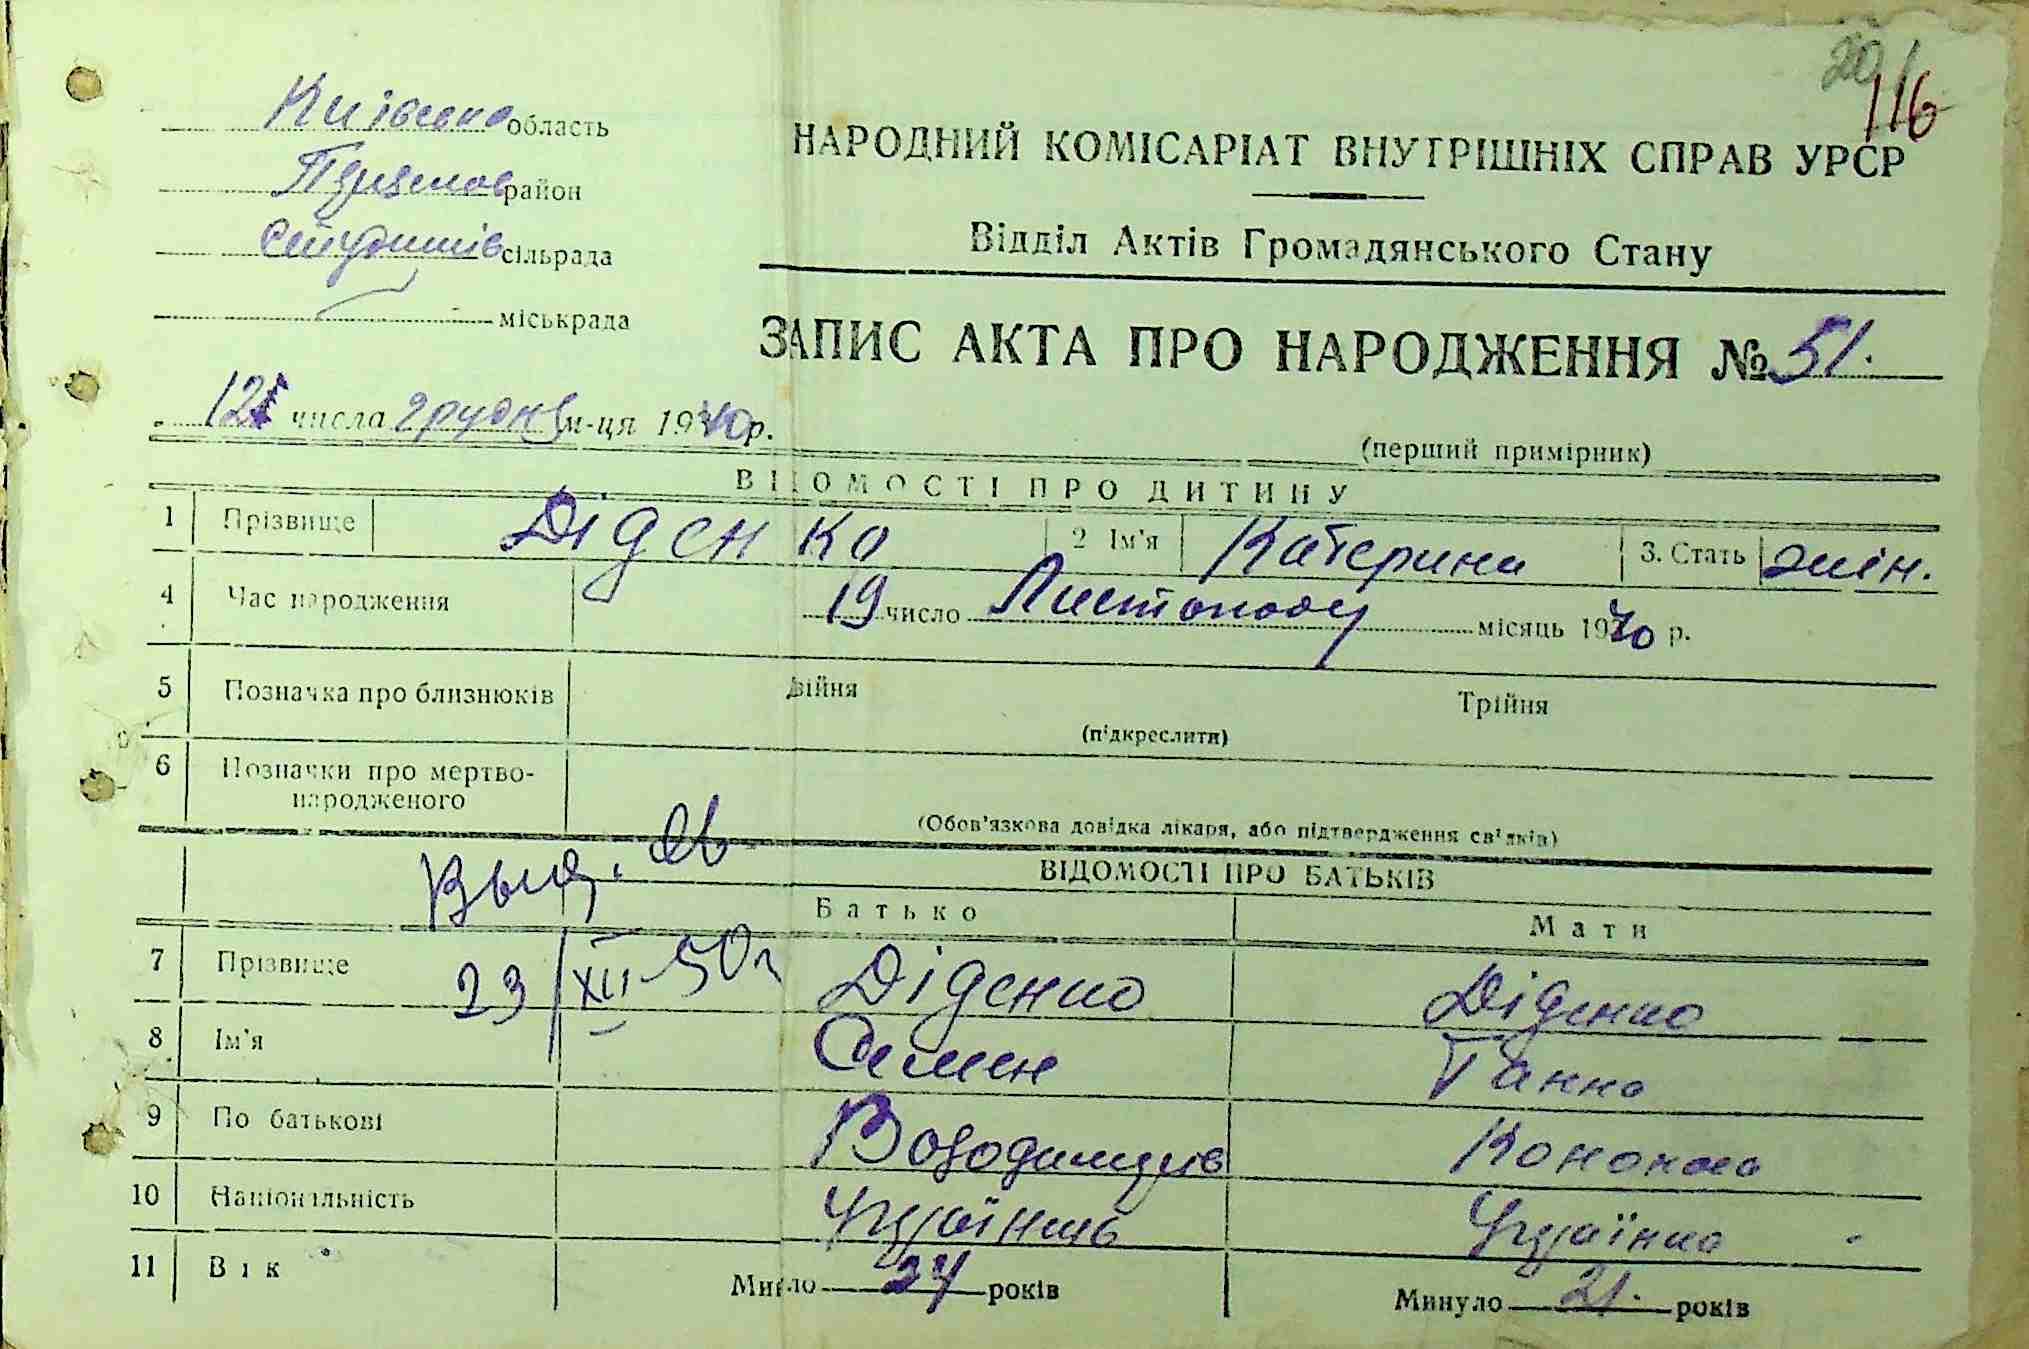 201
116
Київська область
район
Студеників сільрада
міськрада
НАРОДНИЙ КОМІСАРІАТ ВНУТРІШНІХ СПРАВ УРСР
Відділ Актів Громадянського Стану
ЗАПИС АКТА ПРО НАРОДЖЕННЯ № 51.
12 числа грудня м-ця 1940 р.
(перший примірник)
ВІДОМОСТІ ПРО ДИТИНУ
1 Прізвище Діденко 2 Ім'я Катерина 3. Стать жін.
4 Час народження 19 число Листопаду місяць 1940 р.
5 Позначка про близнюків Двійня Трійня
(підкреслити)
6 Позначки про мертво-
народженого
(Обов'язкова довідка лікаря, або підтвердження свідків)
Выд. св
ВІДОМОСТІ ПРО БАТЬКІВ
Батько Мати
23/XII 50 г
7 Прізвище Діденко Діденко
8 Ім'я Семен Ганна
9 По батькові Володимирів Кононова
10 Національність Українець Українка
11 Вік Минуло 24 років Минуло 21. років